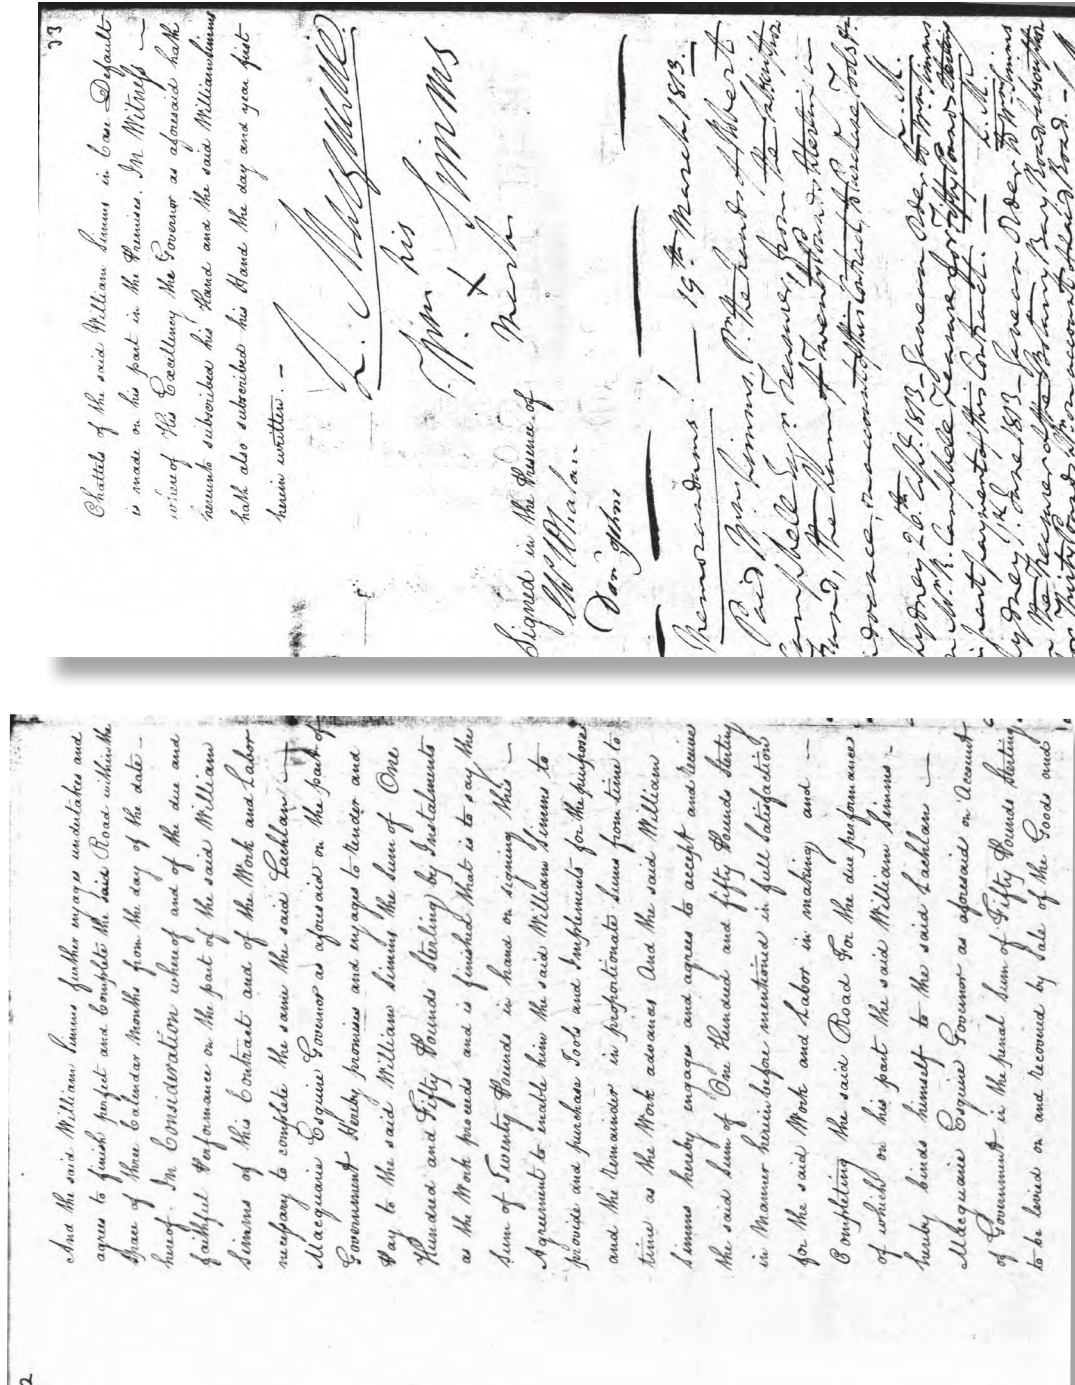 2
And the said William Simms further engages undertakes and
agrees to finish perfect and Complete the said Road within the
Space of three Calendar Months from the day of the date –
hereof. In Consideration whereof and of the due and
faithful Performance on the part of the said William
Simms of this Contract and of the Work and Labor
necessary to complete the same the said Lachlan —
Macquarie Esquire Governor as aforesaid on the part of
Government Hereby promises and engages to tender and
Pay to the said William Simms the sum of One
Hundred and Fifty Pounds Sterling by Instalments
as the Work proceeds and is finished that is to say the
sum of Twenty Pounds in hand on signing this —
Agreement to enable him the said William Simms to
provide and purchase Tools and Implements for the purpose
and the remainder in proportionate sums from time to
time as the Work advances And the said William
Simms hereby engages and agrees to accept and receive
the said Sum of One Hundred and fifty Pounds Sterling
in Manner herein before mentioned in full Satisfaction
for the said Work and Labor in making and —
Completing the said Road For the due performance
of which on his part the said William Simms –
hereby binds himself to the said Lachlan —
Macquarie Esquire Governor as aforesaid on Account
of Government in the penal Sum of Fifty Pounds Sterling
to be levied on and recovered by Sale of the Goods and
33
Chattels of the said William Simms in Case Default
is made on his part in the Premises. In Witness —
where of His Excellency the Governor as aforesaid hath
hereunto subscribed his Hand and the said William Simms
hath also subscribed his Hand the day and year first
herein written. –
L. Macquarie
his
Wm. X Simms
Mark
Signed in the Presence of
Memorandums! — 19th March 1813. —
Paid Wm. Simms, Pr. the hands of Robert
Campbell Esqr. Treasurer, from the
Fund, the Sum of Twenty Pounds Sterlin in
advance, on account of this Contract, to purchase Tools &c
L. M.
Sydney 26th. 1813 – Gave an Order to Wm. Simms
on Mr. R. Campbell Treasurer for Fifty Pounds Sterling
in part payment of this Contract. — L. M.
Sydney 1813 – Gave an Order to Wm. Simms
on the Treasurer of the Botany Bay Road
for Thirty Pounds on account of said Road. –